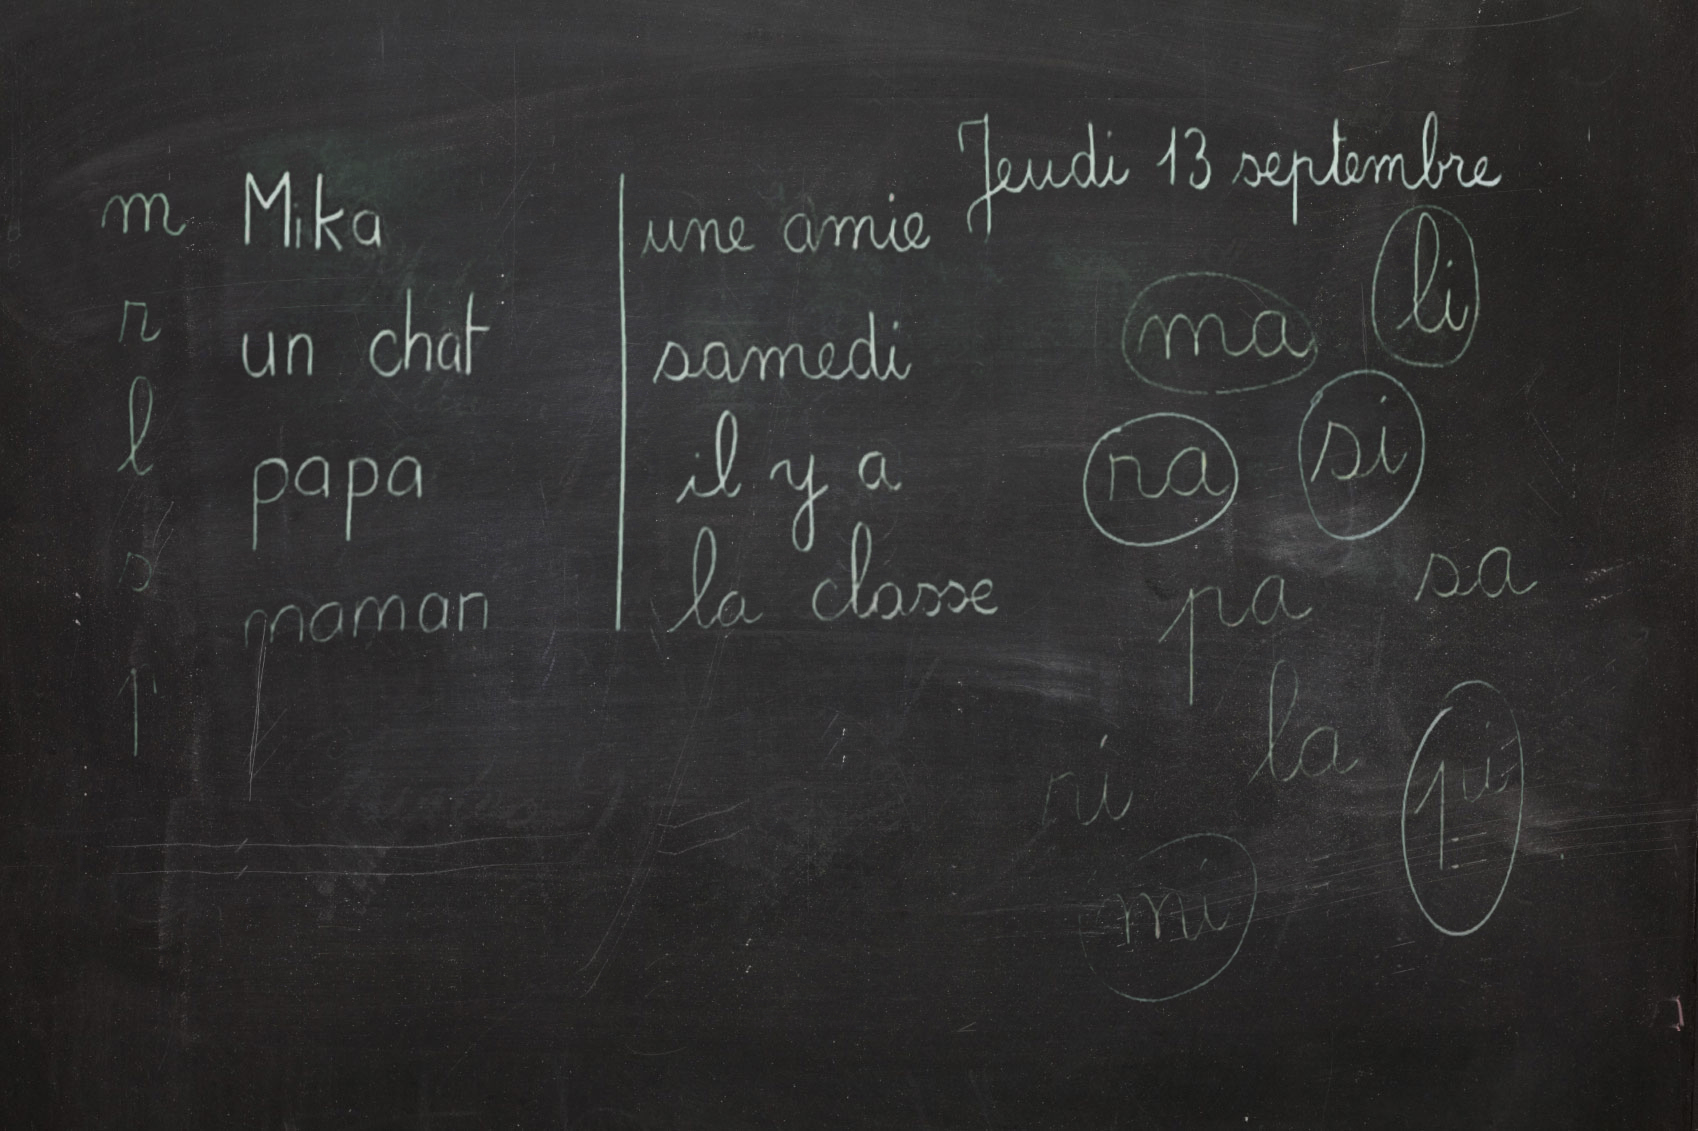 Jeudi 13 septembre
m Mika
r un chat
l papa
s maman
p
une amie
samedi
il y a
la classe
ma li
ra si
pa sa
ri la pi
mi